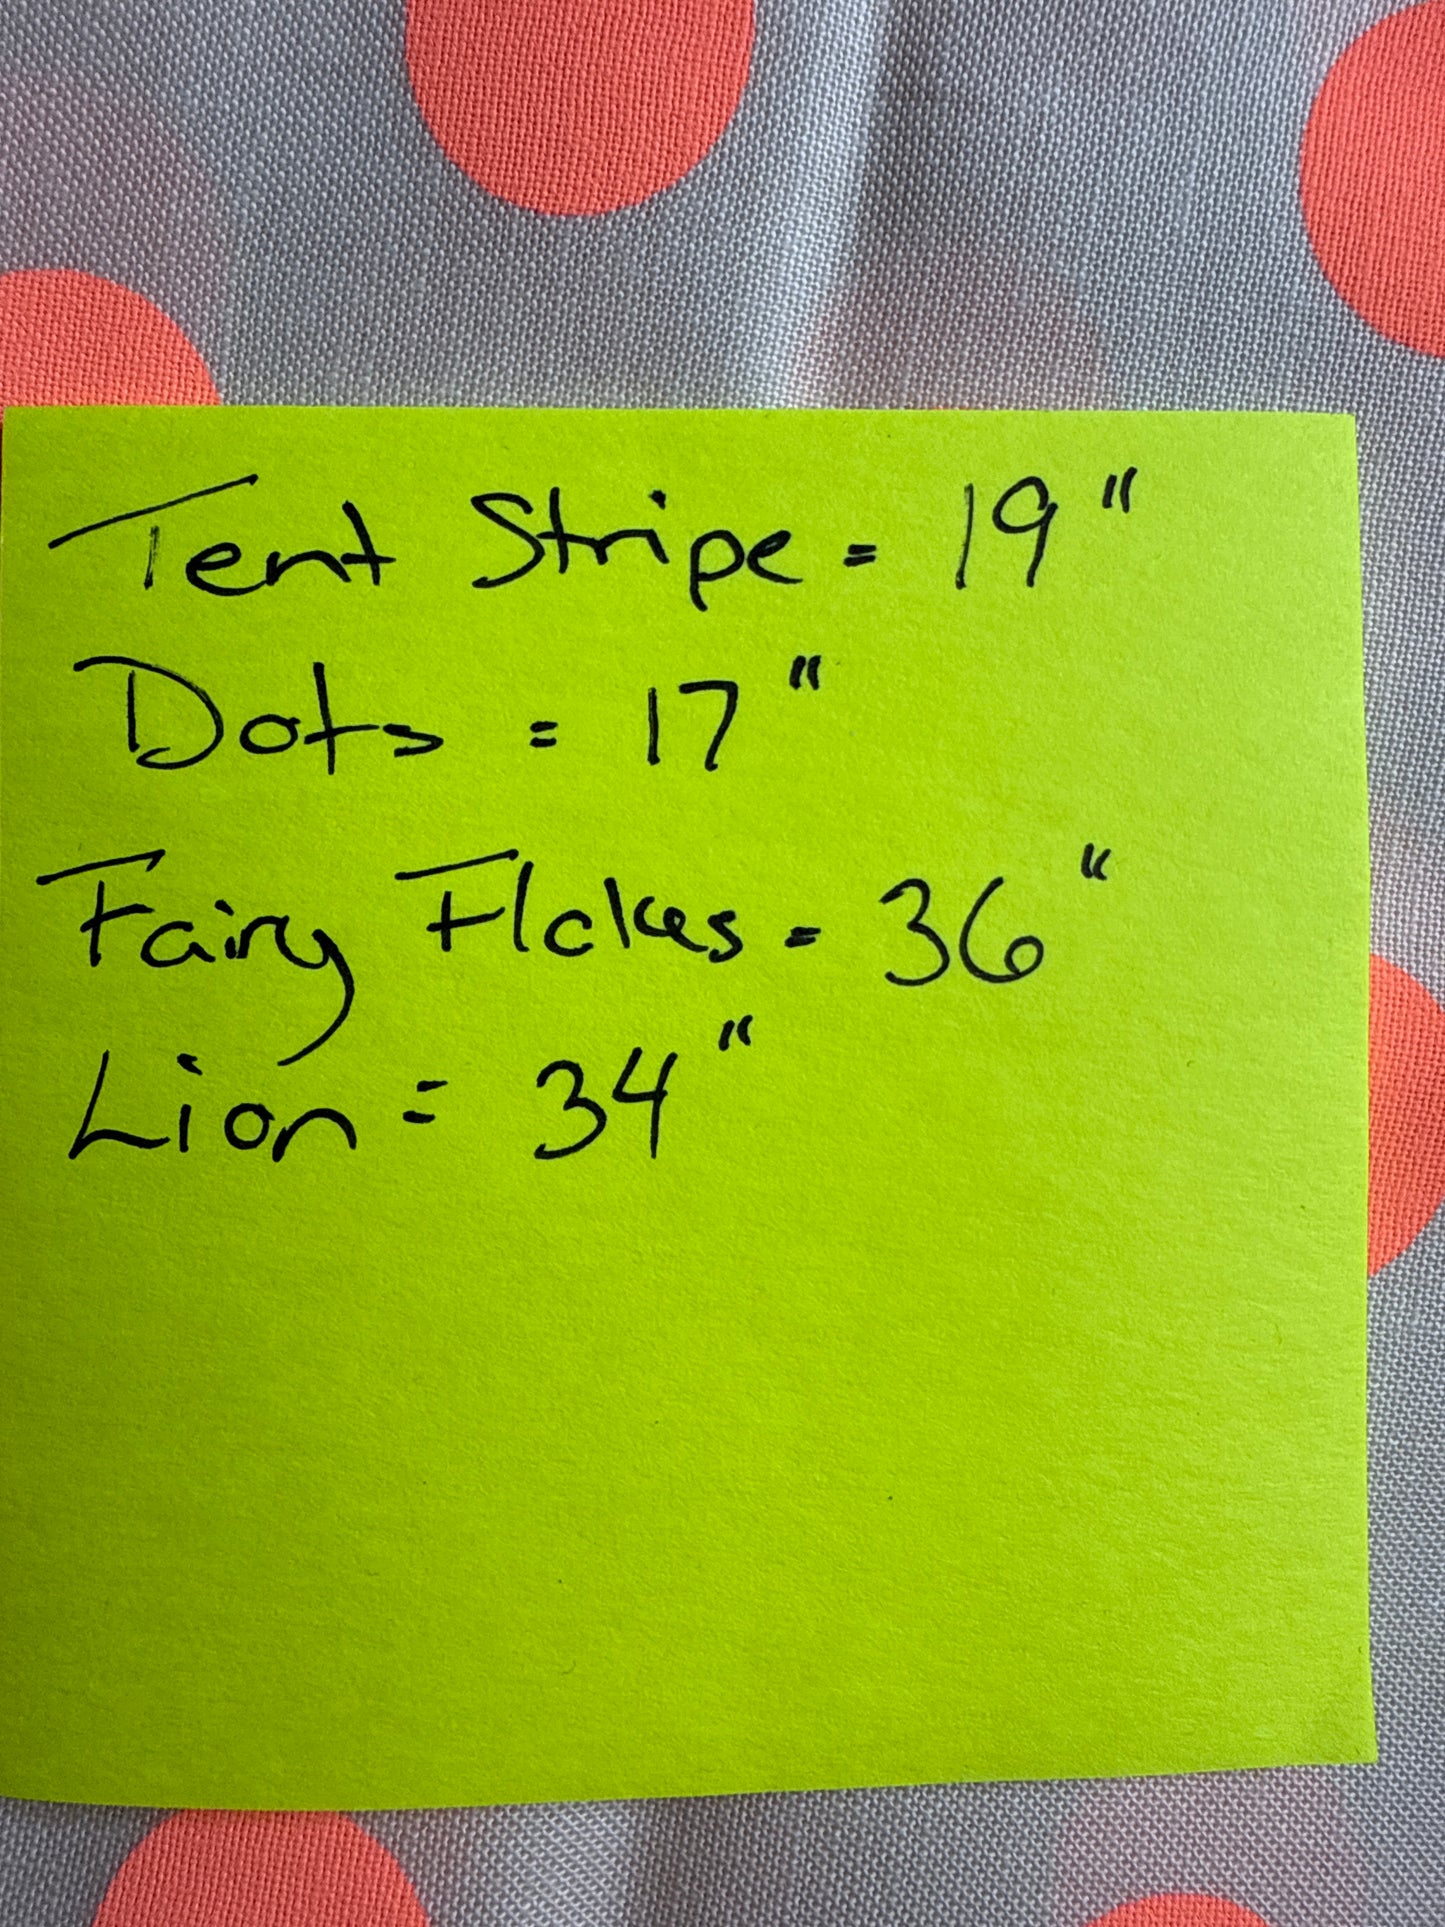 Tent Stripe = 19"
Dots = 17"
Fairy Flakes = 36"
Lion = 34"